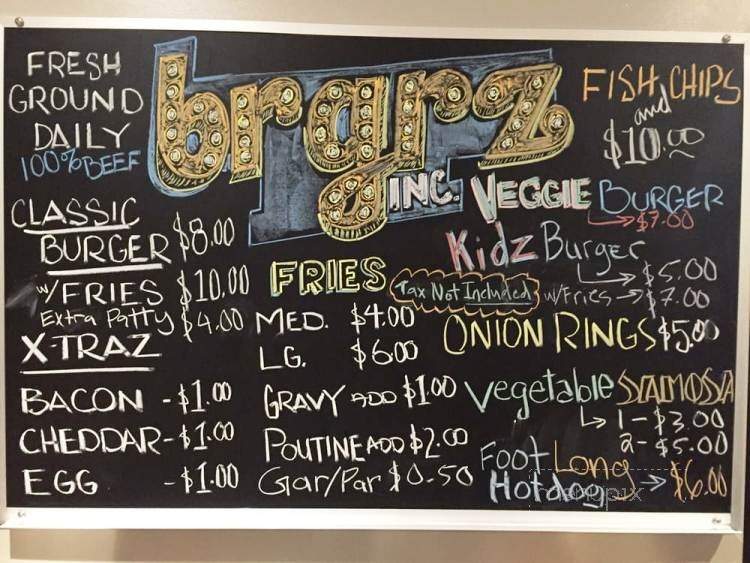 FRESH
GROUND
DAILY
100% BEEF
brgrz
INC.
CLASSIC
BURGER $8.00
w/FRIES $10.00
Extra Patty $4.00
X-TRAZ
BACON - $1.00
CHEDDAR - $1.00
EGG - $1.00
FRIES
MED. $4.00
LG. $6.00
GRAVY ADD $1.00
POUTINE ADD $2.00
Gar/Par $0.50
FISH and CHIPS
$10.00
VEGGIE BURGER
$7.00
Kidz Burger
$5.00
Tax Not Included
w/Fries $7.00
ONION RINGS $5.00
Vegetable SAMOSA
1 - $3.00
2 - $5.00
Foot Long
Hotdog $6.00